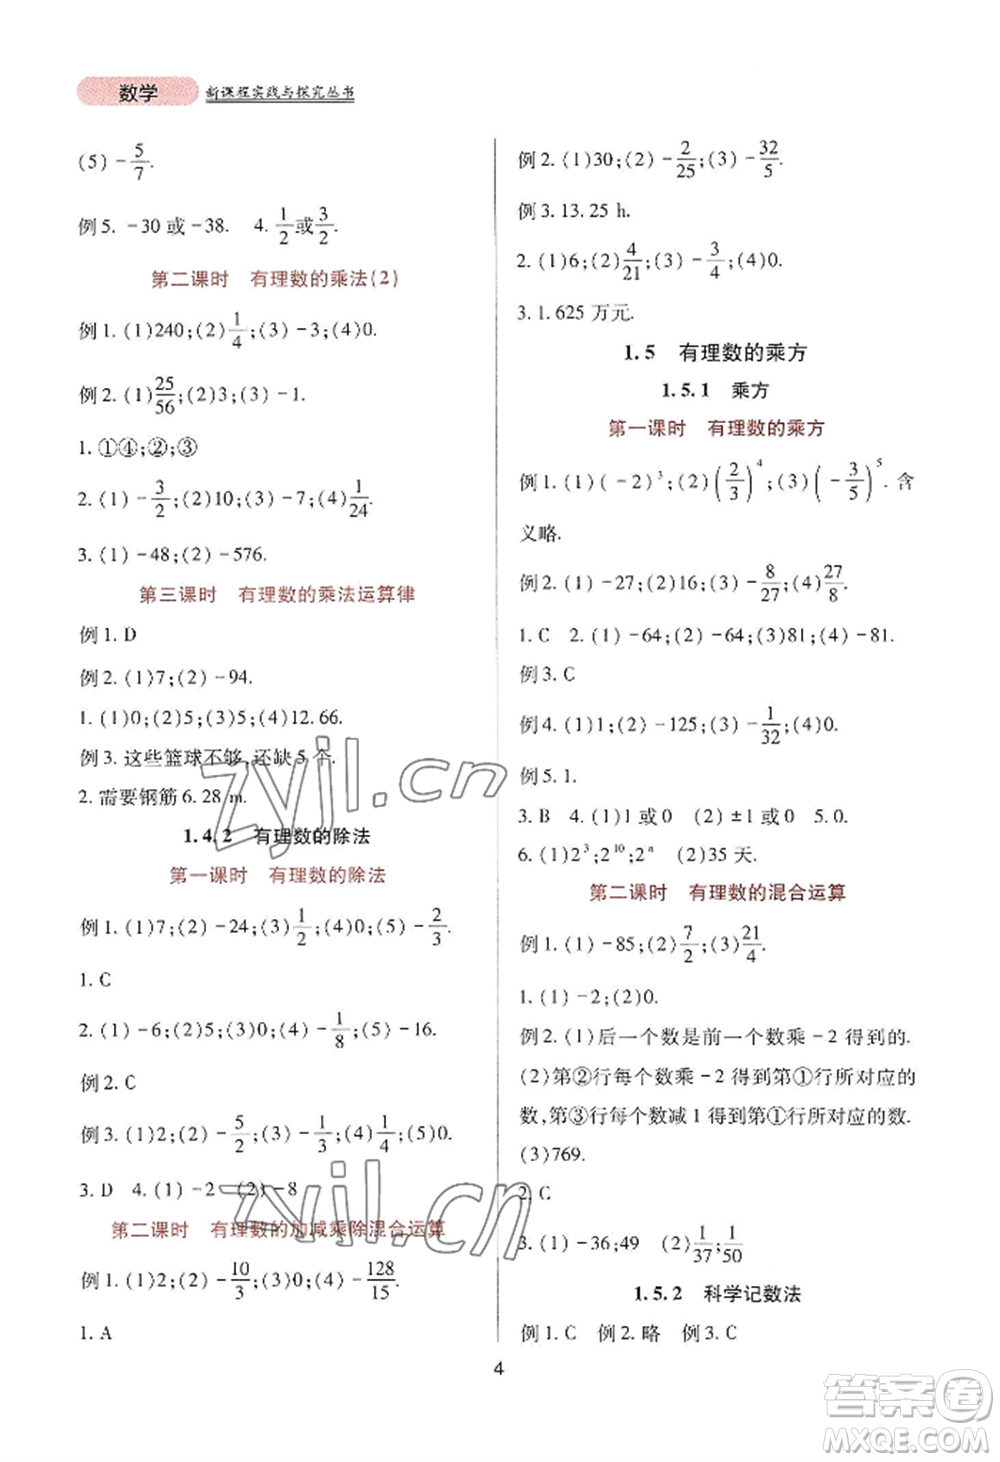 数学 新课程实践与探究丛书
(5) -5/7.
例5. -30或-38. 4. 1/2或3/2.
第二课时 有理数的乘法(2)
例1. (1)240;(2)1/4;(3)-3;(4)0.
例2. (1)25/56;(2)3;(3)-1.
1. ①④;②;③
2. (1)-3/2;(2)10;(3)-7;(4)1/24.
3. (1)-48;(2)-576.
第三课时 有理数的乘法运算律
例1. D
例2. (1)7;(2)-94.
1. (1)0;(2)5;(3)5;(4)12.66.
例3. 这些篮球不够,还缺5个.
2. 需要钢筋6.28 m.
1.4.2 有理数的除法
第一课时 有理数的除法
例1. (1)7;(2)-24;(3)1/2;(4)-2/3.
1. C
2. (1)-6;(2)5;(3)0;(4)-1/8;(5)-16.
例2. C
例3. (1)2;(2)-5/2;(3)-1/3;(4)1/4;(5)0.
3. D 4. (1)-2 (2)-8
第二课时 有理数的加减乘除混合运算
例1. (1)2;(2)-10/3;(3)1/6;(4)-128/15.
1. A
例2. (1)30;(2)-2/25;(3)-32/5.
例3. 13.25 h.
2. (1)6;(2)4/21;(3)-3/4;(4)0.
3. 1.625万元.
1.5 有理数的乘方
1.5.1 乘方
第一课时 有理数的乘方
例1. (1)(-2)³;(2)(2/3)⁴;(3)(-3/5)⁵. 含
义略.
例2. (1)-27;(2)16;(3)-8/27;(4)27/8.
1. C 2. (1)-64;(2)-64;(3)81;(4)-81.
例3. C
例4. (1)1;(2)-125;(3)-1/32;(4)0.
例5. 1.
3. B 4. (1)1或0 (2)±1或0 5. 0.
6. (1)2³;2¹⁰;2ⁿ (2)35天.
第二课时 有理数的混合运算
例1. (1)-85;(2)7/2;(3)21/4.
1. (1)-2;(2)0.
例2. (1)后一个数是前一个数乘-2得到的.
(2)第②行每个数乘-2得到第①行所对应的
数,第③行每个数减1得到第①行所对应的数.
(3)769.
2. C
3. (1)-36;49 (2)1/37;1/50
1.5.2 科学记数法
例1. C 例2. 略 例3. C
4
zyjl.cn
zyjl.cn
答案圈
MXQE.COM